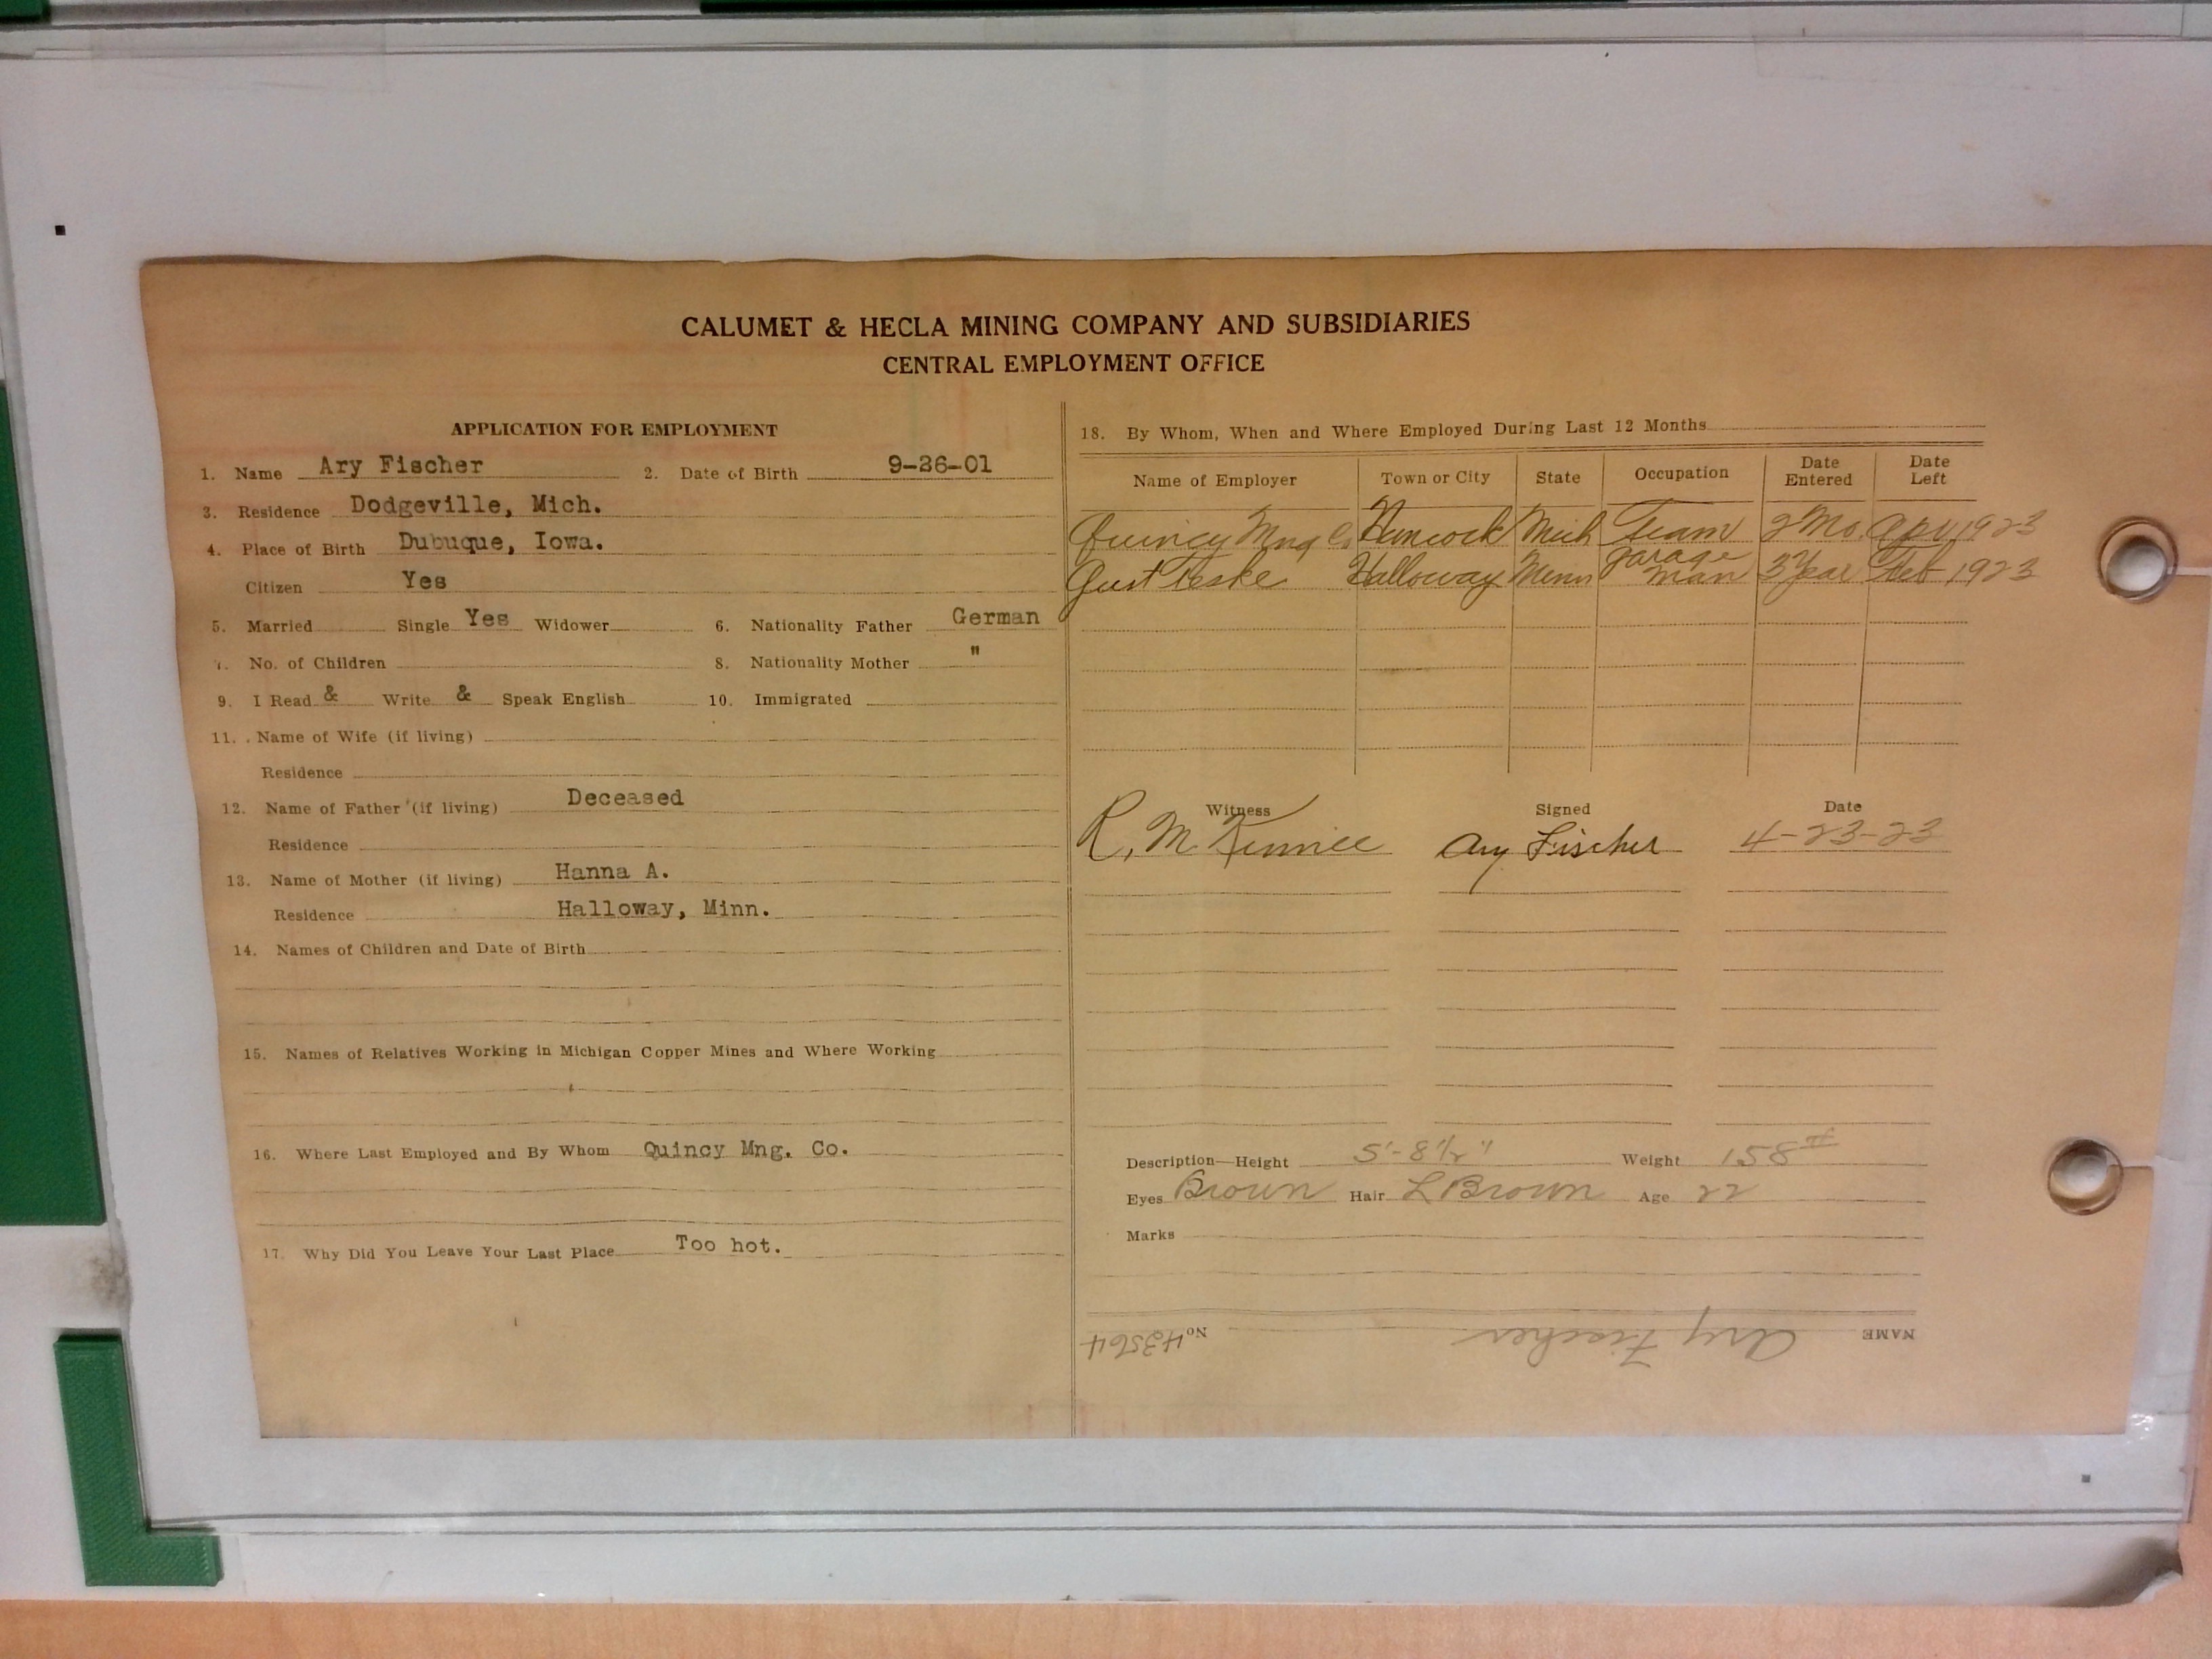 CALUMET & HECLA MINING COMPANY AND SUBSIDIARIES
CENTRAL EMPLOYMENT OFFICE
APPLICATION FOR EMPLOYMENT
1. Name Ary Fischer 2. Date of Birth 9-26-01
3. Residence Dodgeville, Mich.
4. Place of Birth Dubuque, Iowa.
Citizen Yes
5. Married Single Yes Widower 6. Nationality Father German
7. No. of Children 8. Nationality Mother "
9. I Read & Write & Speak English 10. Immigrated
11. Name of Wife (if living)
Residence
12. Name of Father (if living) Deceased
Residence
13. Name of Mother (if living) Hanna A.
Residence Halloway, Minn.
14. Names of Children and Date of Birth
15. Names of Relatives Working in Michigan Copper Mines and Where Working
16. Where Last Employed and By Whom Quincy Mng. Co.
17. Why Did You Leave Your Last Place Too hot.
18. By Whom, When and Where Employed During Last 12 Months
Name of Employer Town or City State Occupation Date Entered Date Left
Quincy Mng Co. Hancock Mich Team 2 Mo. Apr 1923
Gust Teske Halloway Minn garage man 3 Year Feb 1923
Witness Signed Date
R. M. Ary Fischer 4-23-23
Description—Height 5'-8 1/2" Weight 158#
Eyes Brown Hair L Brown Age 22
Marks
NAME Ary Fischer No 43564